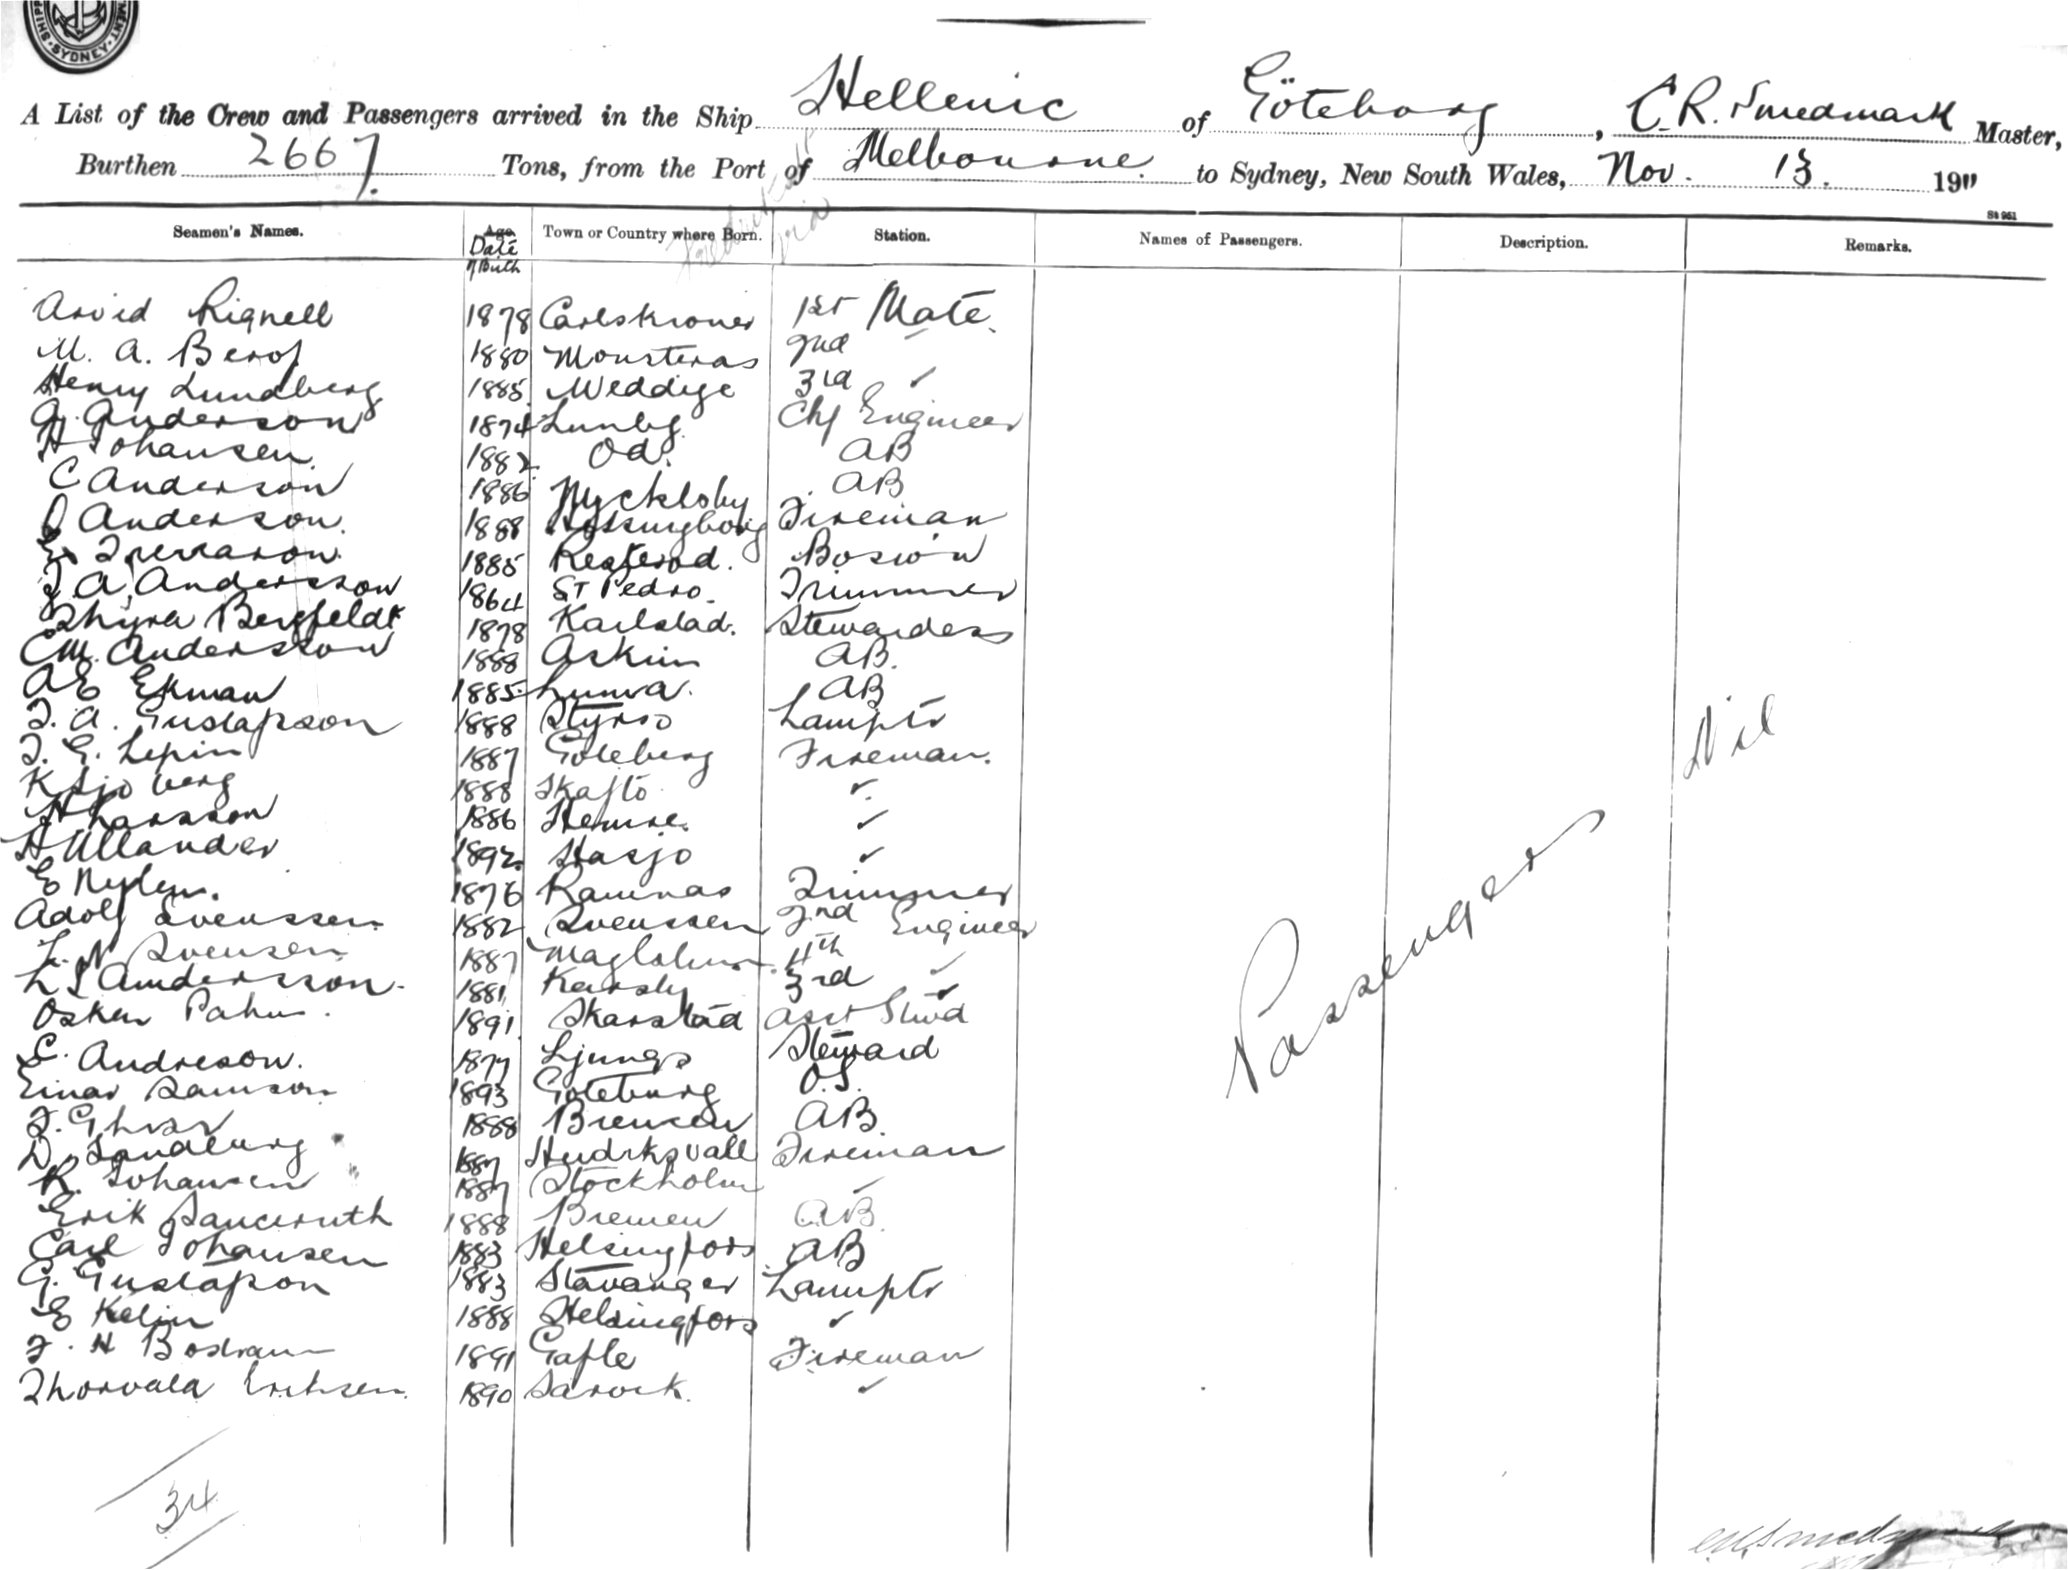 SYDNEY
A List of the Crew and Passengers arrived in the Ship Hellenic of Göteborg, C. R. Smedmark Master,
Burthen 2667 Tons, from the Port of Melbourne to Sydney, New South Wales, Nov. 13. 1911
St 961
Seamen's Names. Age Date of Birth Town or Country where Born. Station. Names of Passengers. Description. Remarks.
Arvid Rignell 1878 Carlskroner 1st Mate
M. A. Berof 1880 Monsteras 2nd
Henry Lundberg 1885 Weddige 3rd ✓
G. Anderson 1874 Lunby Chf Engineer
H Johansen 1882 Od. AB
C Anderson 1886 Myckleby AB
Anderson. 1888 Helsingborg Fireman
1885 Bosw'n
J. A. Andersson 1864 St Pedro. Trimmer
Thyra Bergfeldt 1878 Karlstad. Stewardess
C M. Andersson 1888 Askim AB.
A E Ekman 1885 AB
J. A. Gustafsson 1888 Styrso Lamptr
J. E. Lepin 1887 Goteberg Fireman.
K Sjoberg 1888 Skafto ✓
H Larsson 1886 ✓
H Ullander 1892 Stasjo ✓
E Nylen. 1876 Ramnas Trimmer
Adolf Svenssen 1882 Svenssen 2nd Engineer
L. N Svensen 1887 4th ✓
L L Andersson. 1881 Karsby 3rd ✓
Oskar Palm. 1891 Skarstad Asst Stwd
C. Andreson. 1877 Ljungs Steward
Einar Samson 1893 Goteburg O.S.
1888 Bremen AB.
D. Sandburg 1887 Hudiksvall Fireman
R. Johansen 1887 Stockholm ✓
Erik 1888 Bremen AB
Carl Johansen 1883 Helsingfors AB
G. Gustafson 1883 Stavanger Lamptr
E Kelin 1888 Helsingfors ✓
F. H Bostrom 1891 Gafle Fireman
Thorvald Eriksen. 1890 ✓
Passengers Nil
34